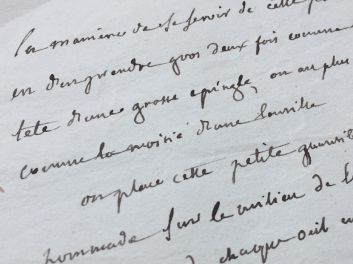 la maniere de se servir de cette
en d'en prendre gros deux fois comme
tete d'une grosse epingle, ou au plus
comme la moitié d'une lentille
on place cette petite quantité
pommade sur le milieu de
chaque oeil